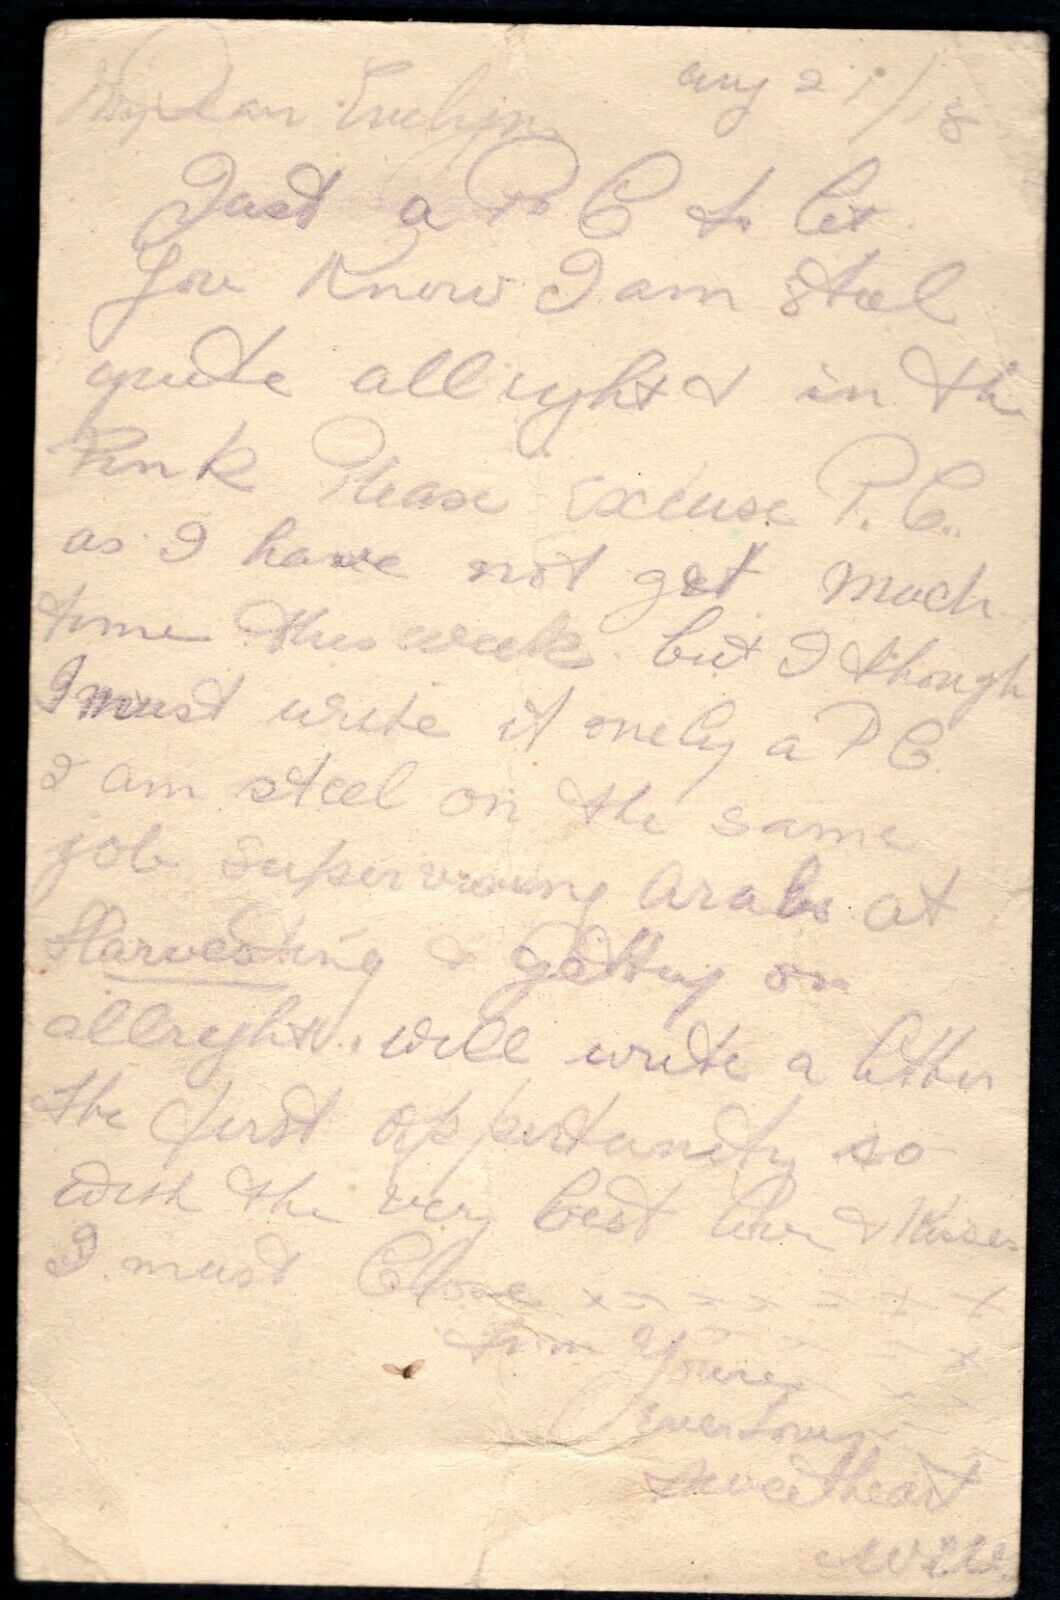 My Dear Evelyn Aug 21/18
Just a P C to let
you know I am steel
quite allright & in the
Pink Please Excuse P.C.
as I have not get much
time this week but I though
I must write it onely a P C.
I am steel on the same
job Supervising Arabs at
Harvesting & getting on
allright. Will write a letter
the first oppertunity so
with the very best love & Kisses
I must Close x x x x x x x
from Youre x
ever Loving
Sweetheart
Will